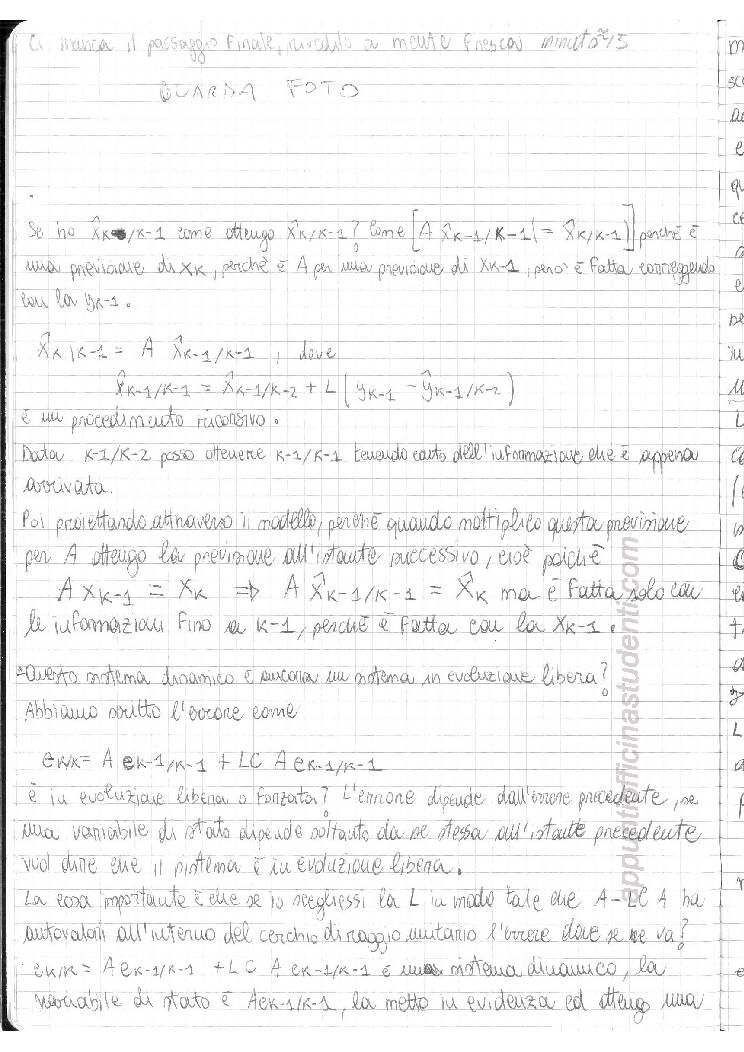 Ci manca il passaggio finale, rivedilo a mente fresca minuto ≈ 15
GUARDA FOTO
Se ho x̂k/k-1 come ottengo x̂k/k-1? Come [A x̂k-1/k-1 (= x̂k/k-1)] perché è
una previsione di xk, perché è A per una previsione di xk-1, però è fatta correggendo
con la yk-1.
x̂k|k-1 = A x̂k-1/k-1 , dove
x̂k-1/k-1 = x̂k-1/k-2 + L (yk-1 - ŷk-1/k-2)
è un procedimento ricorsivo.
Data k-1/k-2 posso ottenere k-1/k-1 tenendo conto dell'informazione che è appena
arrivata.
Poi proiettando attraverso il modello, perché quando moltiplico questa previsione
per A ottengo la previsione all'istante successivo, cioè poiché
A xk-1 = xk ⇒ A x̂k-1/k-1 = x̂k ma è fatta solo con
le informazioni fino a k-1, perché è fatta con la xk-1.
Questo sistema dinamico è ancora un sistema in evoluzione libera?
Abbiamo scritto l'errore come
ek/k = A ek-1/k-1 + LC A ek-1/k-1
è in evoluzione libera o forzata? L'errore dipende dall'errore precedente, se
una variabile di stato dipende soltanto da se stessa all'istante precedente
vuol dire che il sistema è in evoluzione libera.
La cosa importante è che se io scegliessi la L in modo tale che A-LC A ha
autovalori all'interno del cerchio di raggio unitario l'errore dove se ne va?
ek/k = A ek-1/k-1 + LC A ek-1/k-1 è un sistema dinamico, la
variabile di stato è Aek-1/k-1, la metto in evidenza ed ottengo una
appuntiofficinastudenti.com